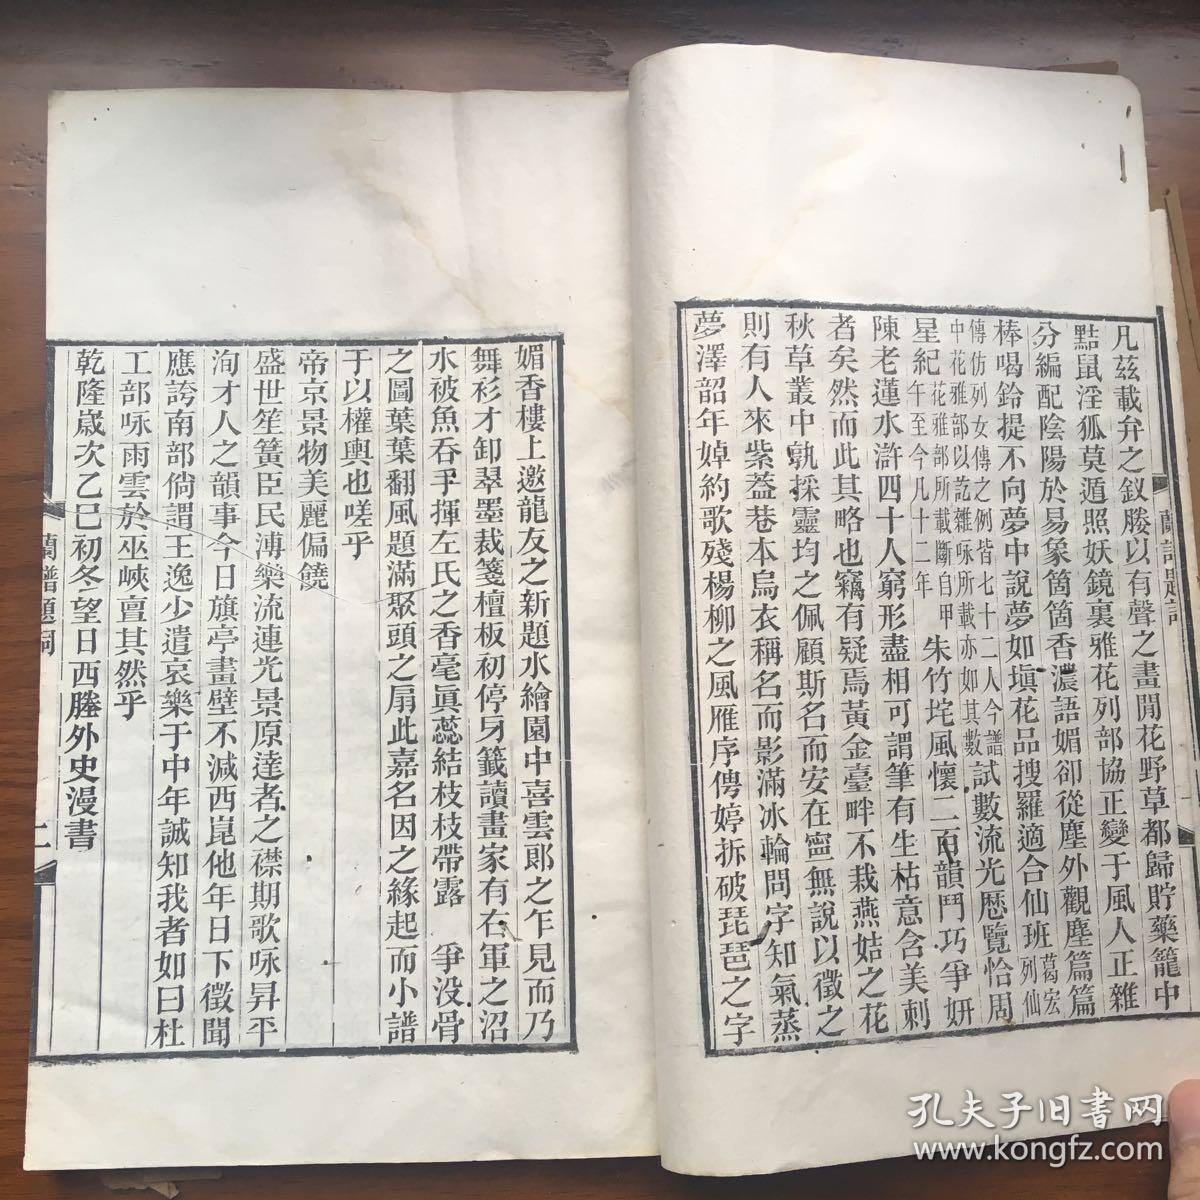 凡茲載弁之釵勝以有聲之畫閒花野草都歸貯藥籠中
黠鼠淫狐莫遁照妖鏡裏雅花列部協正變于風人正雜
分編配陰陽於易象箇箇香濃語媚卻從塵外觀塵篇篇
棒喝鈴提不向夢中說夢如塡花品搜羅適合仙班葛宏列仙
傳仿列女傳之例皆七十二人今譜
中花雅部以訖雜咏所載亦如其數試數流光歷覽恰周
星紀花雅部所載斷自甲午至今凡十二年朱竹垞風懷二百韻鬥巧爭妍
陳老蓮水滸四十人窮形盡相可謂筆有生枯意含美刺
者矣然而此其略也竊有疑焉黃金臺畔不栽燕姞之花
秋草叢中孰採靈均之佩顧斯名而安在寧無說以徵之
則有人來紫蓋巷本烏衣稱名而影滿冰輪問字知氣蒸
夢澤韶年婥約歌殘楊柳之風雁序俜婷拆破琵琶之字
媚香樓上邀龍友之新題水繪園中喜雲郎之乍見而乃
舞衫才卸翠墨裁箋檀板初停牙籤讀畫家有右軍之沼
水被魚吞手揮左氏之香毫眞蕊結枝枝帶露爭没骨
之圖葉葉翻風題滿聚頭之扇此嘉名因之緣起而小譜
于以權輿也嗟乎
帝京景物美麗偏饒
盛世笙簧臣民溥樂流連光景原達者之襟期歌咏昇平
洵才人之韻事今日旗亭畫壁不減西崑他年日下徵聞
應誇南部倘謂王逸少遣哀樂于中年誠知我者如曰杜
工部咏雨雲於巫峽亶其然乎
乾隆嵗次乙巳初冬望日西塍外史漫書
蘭譜題詞
二
孔夫子旧书网
www.kongfz.com